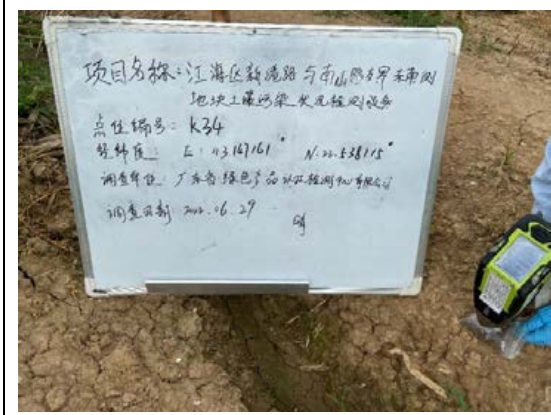 项目名称:江海区新港路与南山路交界东南侧
地块土壤污染状况检测服务
点位编号:K34
经纬度: E:113.167161° N:22.538115°
调查单位:广东省绿色产品认证检测中心有限公司
调查日期:2022.06.29